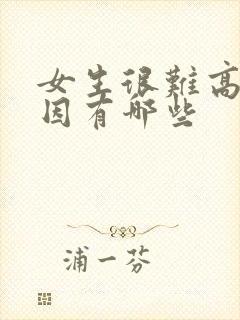 女生很難高
因有哪些
浦一芬